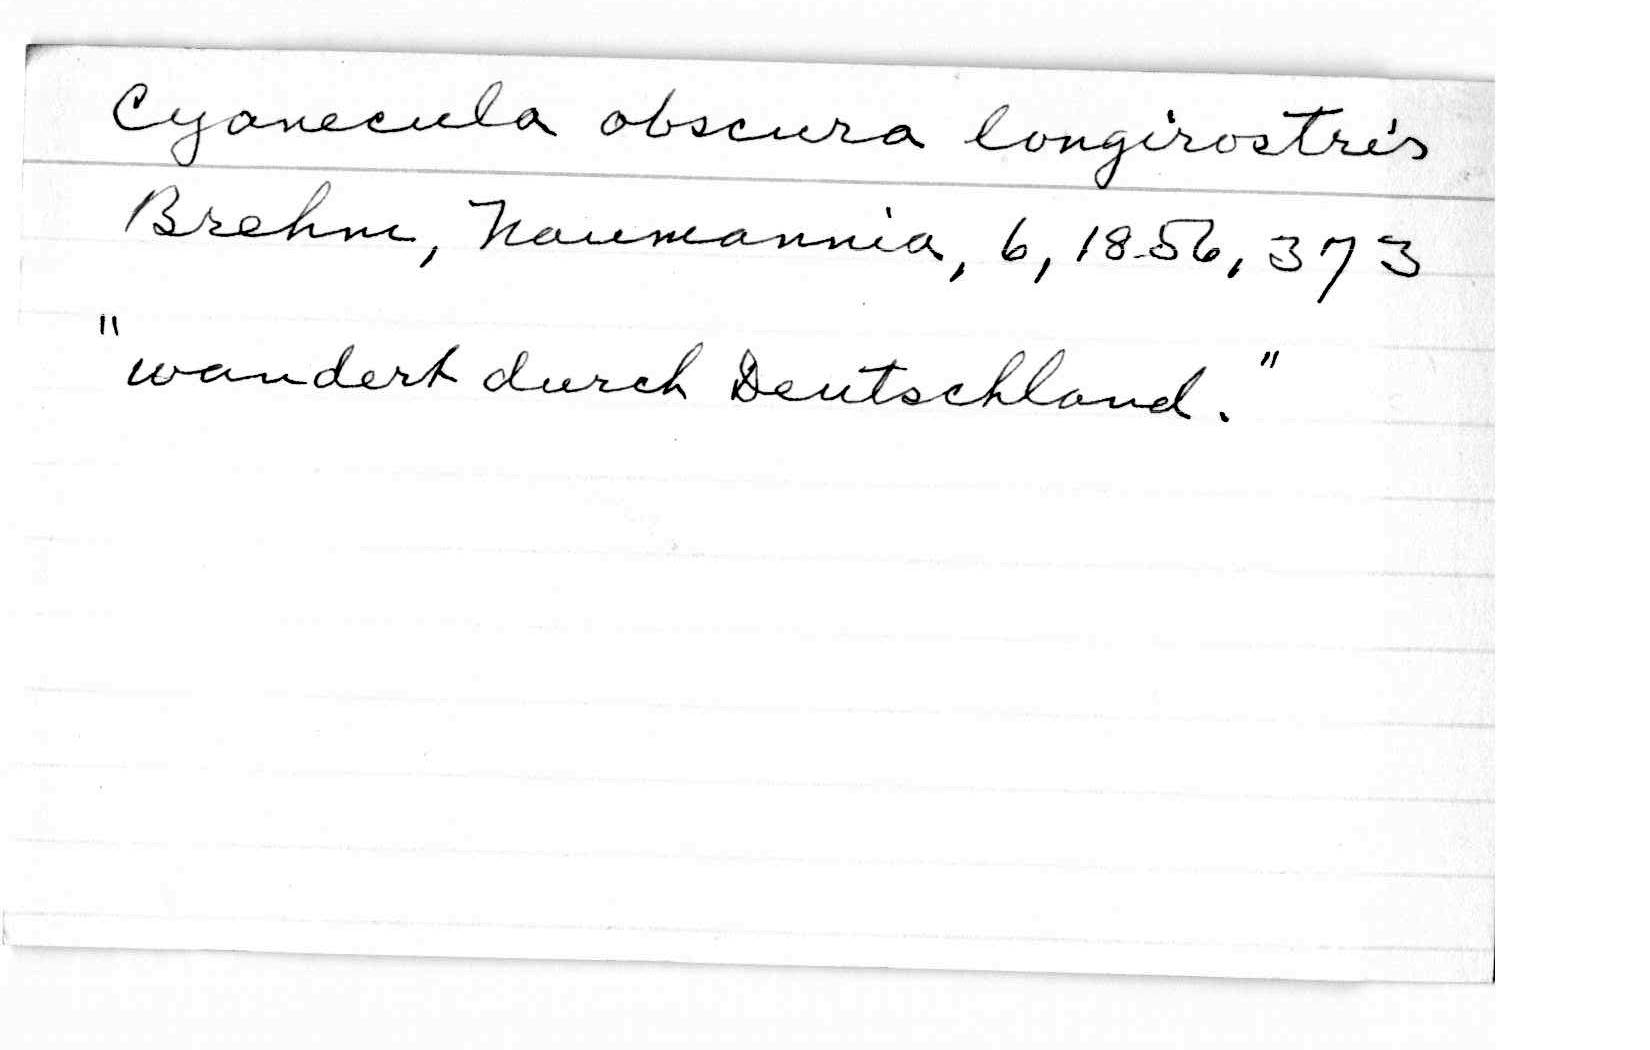 Cyanecula obscura longirostris
Brehm, Naumannia, 6, 1856, 373
"wandert durch Deutschland."